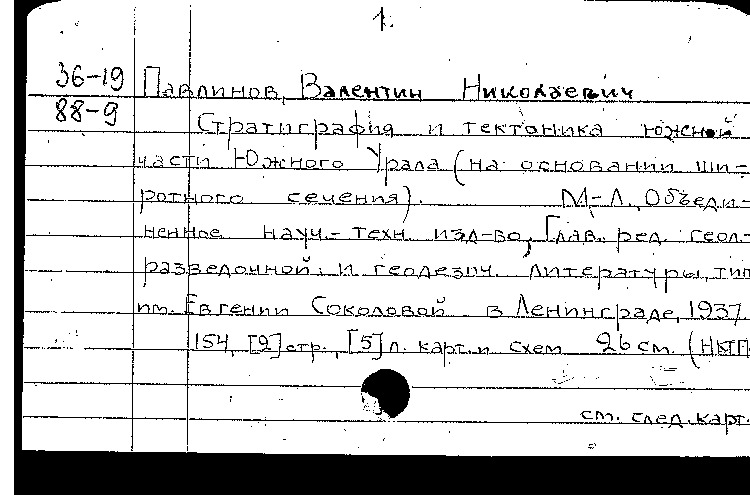 1.
36-19 Павлинов, Валентин Николаевич
88-9 Стратиграфия и тектоника южной
части Южного Урала (на основании ши-
ротного сечения). М-Л., Объеди-
ненное науч.-техн. изд-во, Глав. ред. геол-
разведочной и геодезич. литературы, тип
им. Евгении Соколовой в Ленинграде, 1937.
154, [2] стр., [5] л. карт. и схем 26 см. (НКТП
см. след. карт.